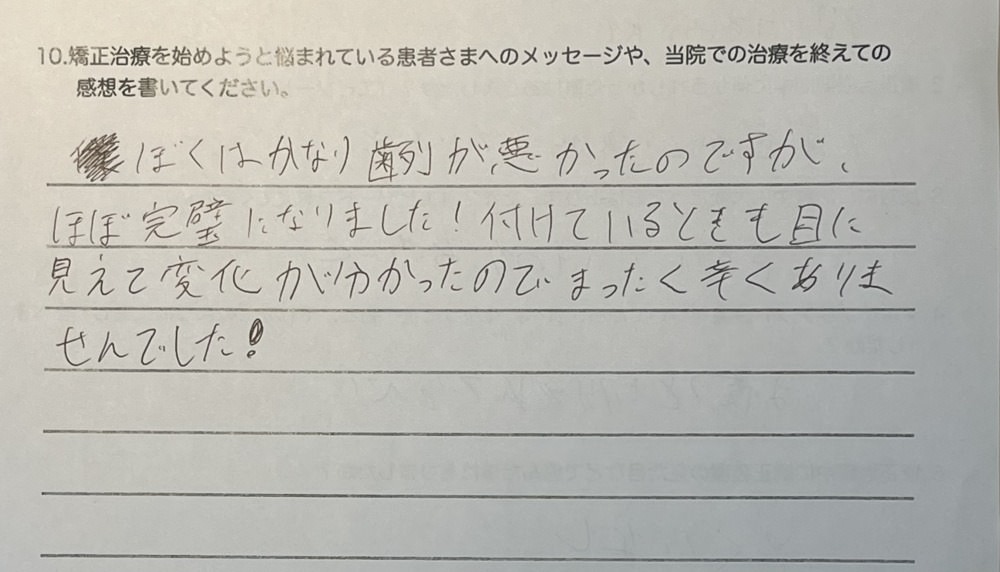 10.矯正治療を始めようと悩まれている患者さまへのメッセージや、当院での治療を終えての
感想を書いてください。
ぼくはかなり歯列が悪かったのですが、
ほぼ完璧になりました！付けているときも目に
見えて変化が分かったのでまったく辛くありま
せんでした！